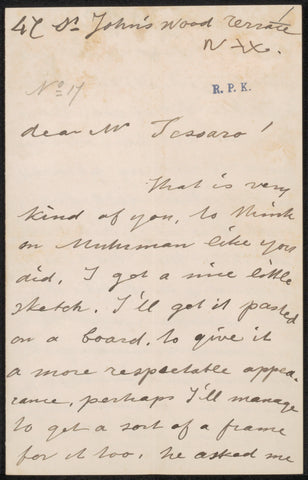 47 St. John's Wood Terrace
N W.
No 17
R. P. K.
dear Mr Tessaro!
That is very
kind of you, to think
on Muhrman like you
did, I got a nice little
sketch. I'll get it pasted
on a board, to give it
a more respectable appea-
rance, perhaps I'll manage
to get a sort of a frame
for it too, he asked me